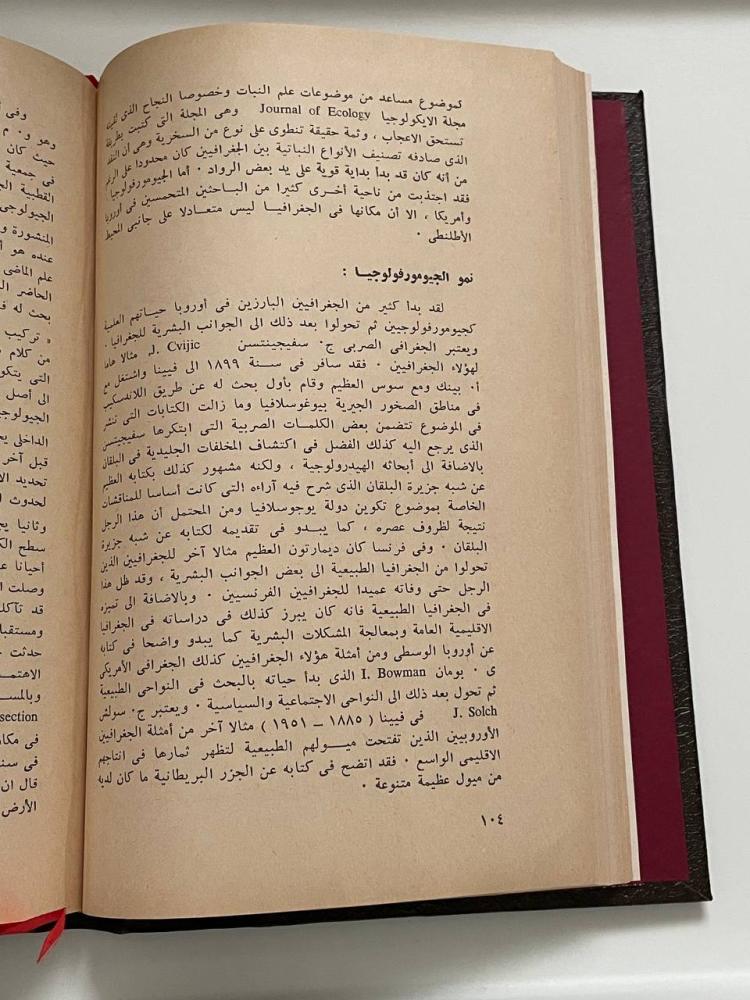 كموضوع مساعد من موضوعات علم النبات وخصوصا النجاح الذى
مجلة الايكولوجيا Journal of Ecology وهى المجلة التى كتبت بطريقة
تستحق الاعجاب ، وثمة حقيقة تنطوى على نوع من السخرية وهى ان
الذى صادفه تصنيف الأنواع النباتية بين الجغرافيين كان محدودا على الرغم
من أنه كان قد بدأ بداية قوية على يد بعض الرواد . أما الجيومورفولوجيا
فقد اجتذبت من ناحية أخرى كثيرا من الباحثين المتحمسين فى أوروبا
وأمريكا ، الا أن مكانها فى الجغرافيا ليس متعادلا على جانبى المحيط
الأطلنطى .
نمو الجيومورفولوجيا :
لقد بدأ كثير من الجغرافيين البارزين فى أوروبا حياتهم العلمية
كجيومورفولوجيين ثم تحولوا بعد ذلك الى الجوانب البشرية للجغرافيا .
ويعتبر الجغرافى الصربى ج. سفيجينتسن J. Cvijic مثالا هاما
لهؤلاء الجغرافيين . فقد سافر فى سنة ١٨٩٩ الى فيينا واشتغل مع
أ. بينك ومع سوس العظيم وقام باول بحث له عن طريق اللاندسكيب
فى مناطق الصخور الجيرية بيوغوسلافيا وما زالت الكتابات التى تنشر
فى الموضوع تتضمن بعض الكلمات الصربية التى ابتكرها سفيجيتسن
الذى يرجع اليه كذلك الفضل فى اكتشاف المخلفات الجليدية فى البلقان
بالاضافة الى أبحاثه الهيدرولوجية ، ولكنه مشهور كذلك بكتابه العظيم
عن شبه جزيرة البلقان الذى شرح فيه آراءه التى كانت أساسا للمناقشات
الخاصة بموضوع تكوين دولة يوجوسلافيا ومن المحتمل أن هذا الرجل
نتيجة لظروف عصره ، كما يبدو فى تقديمه لكتابه عن شبه جزيرة
البلقان . وفى فرنسا كان ديمارتون العظيم مثالا آخر للجغرافيين الذين
تحولوا من الجغرافيا الطبيعية الى بعض الجوانب البشرية ، وقد ظل هذا
الرجل حتى وفاته عميدا للجغرافيين الفرنسيين . وبالاضافة الى تميزه
فى الجغرافيا الطبيعية فانه كان يبرز كذلك فى دراساته فى الجغرافيا
الاقليمية العامة وبمعالجة المشكلات البشرية كما يبدو واضحا فى كتابه
عن أوروبا الوسطى ومن أمثلة هؤلاء الجغرافيين كذلك الجغرافى الأمريكى
ى . بومان I. Bowman الذى بدأ حياته بالبحث فى النواحى الطبيعية
ثم تحول بعد ذلك الى النواحى الاجتماعية والسياسية . ويعتبر ج. سولش
J. Solch فى فيينا ( ١٨٨٥ – ١٩٥١ ) مثالا آخر من أمثلة الجغرافيين
الأوروبيين الذين تفتحت ميولهم الطبيعية لتظهر ثمارها فى انتاجهم
الاقليمى الواسع . فقد اتضح فى كتابه عن الجزر البريطانية ما كان لديه
من ميول عظيمة متنوعة .
١٠٤